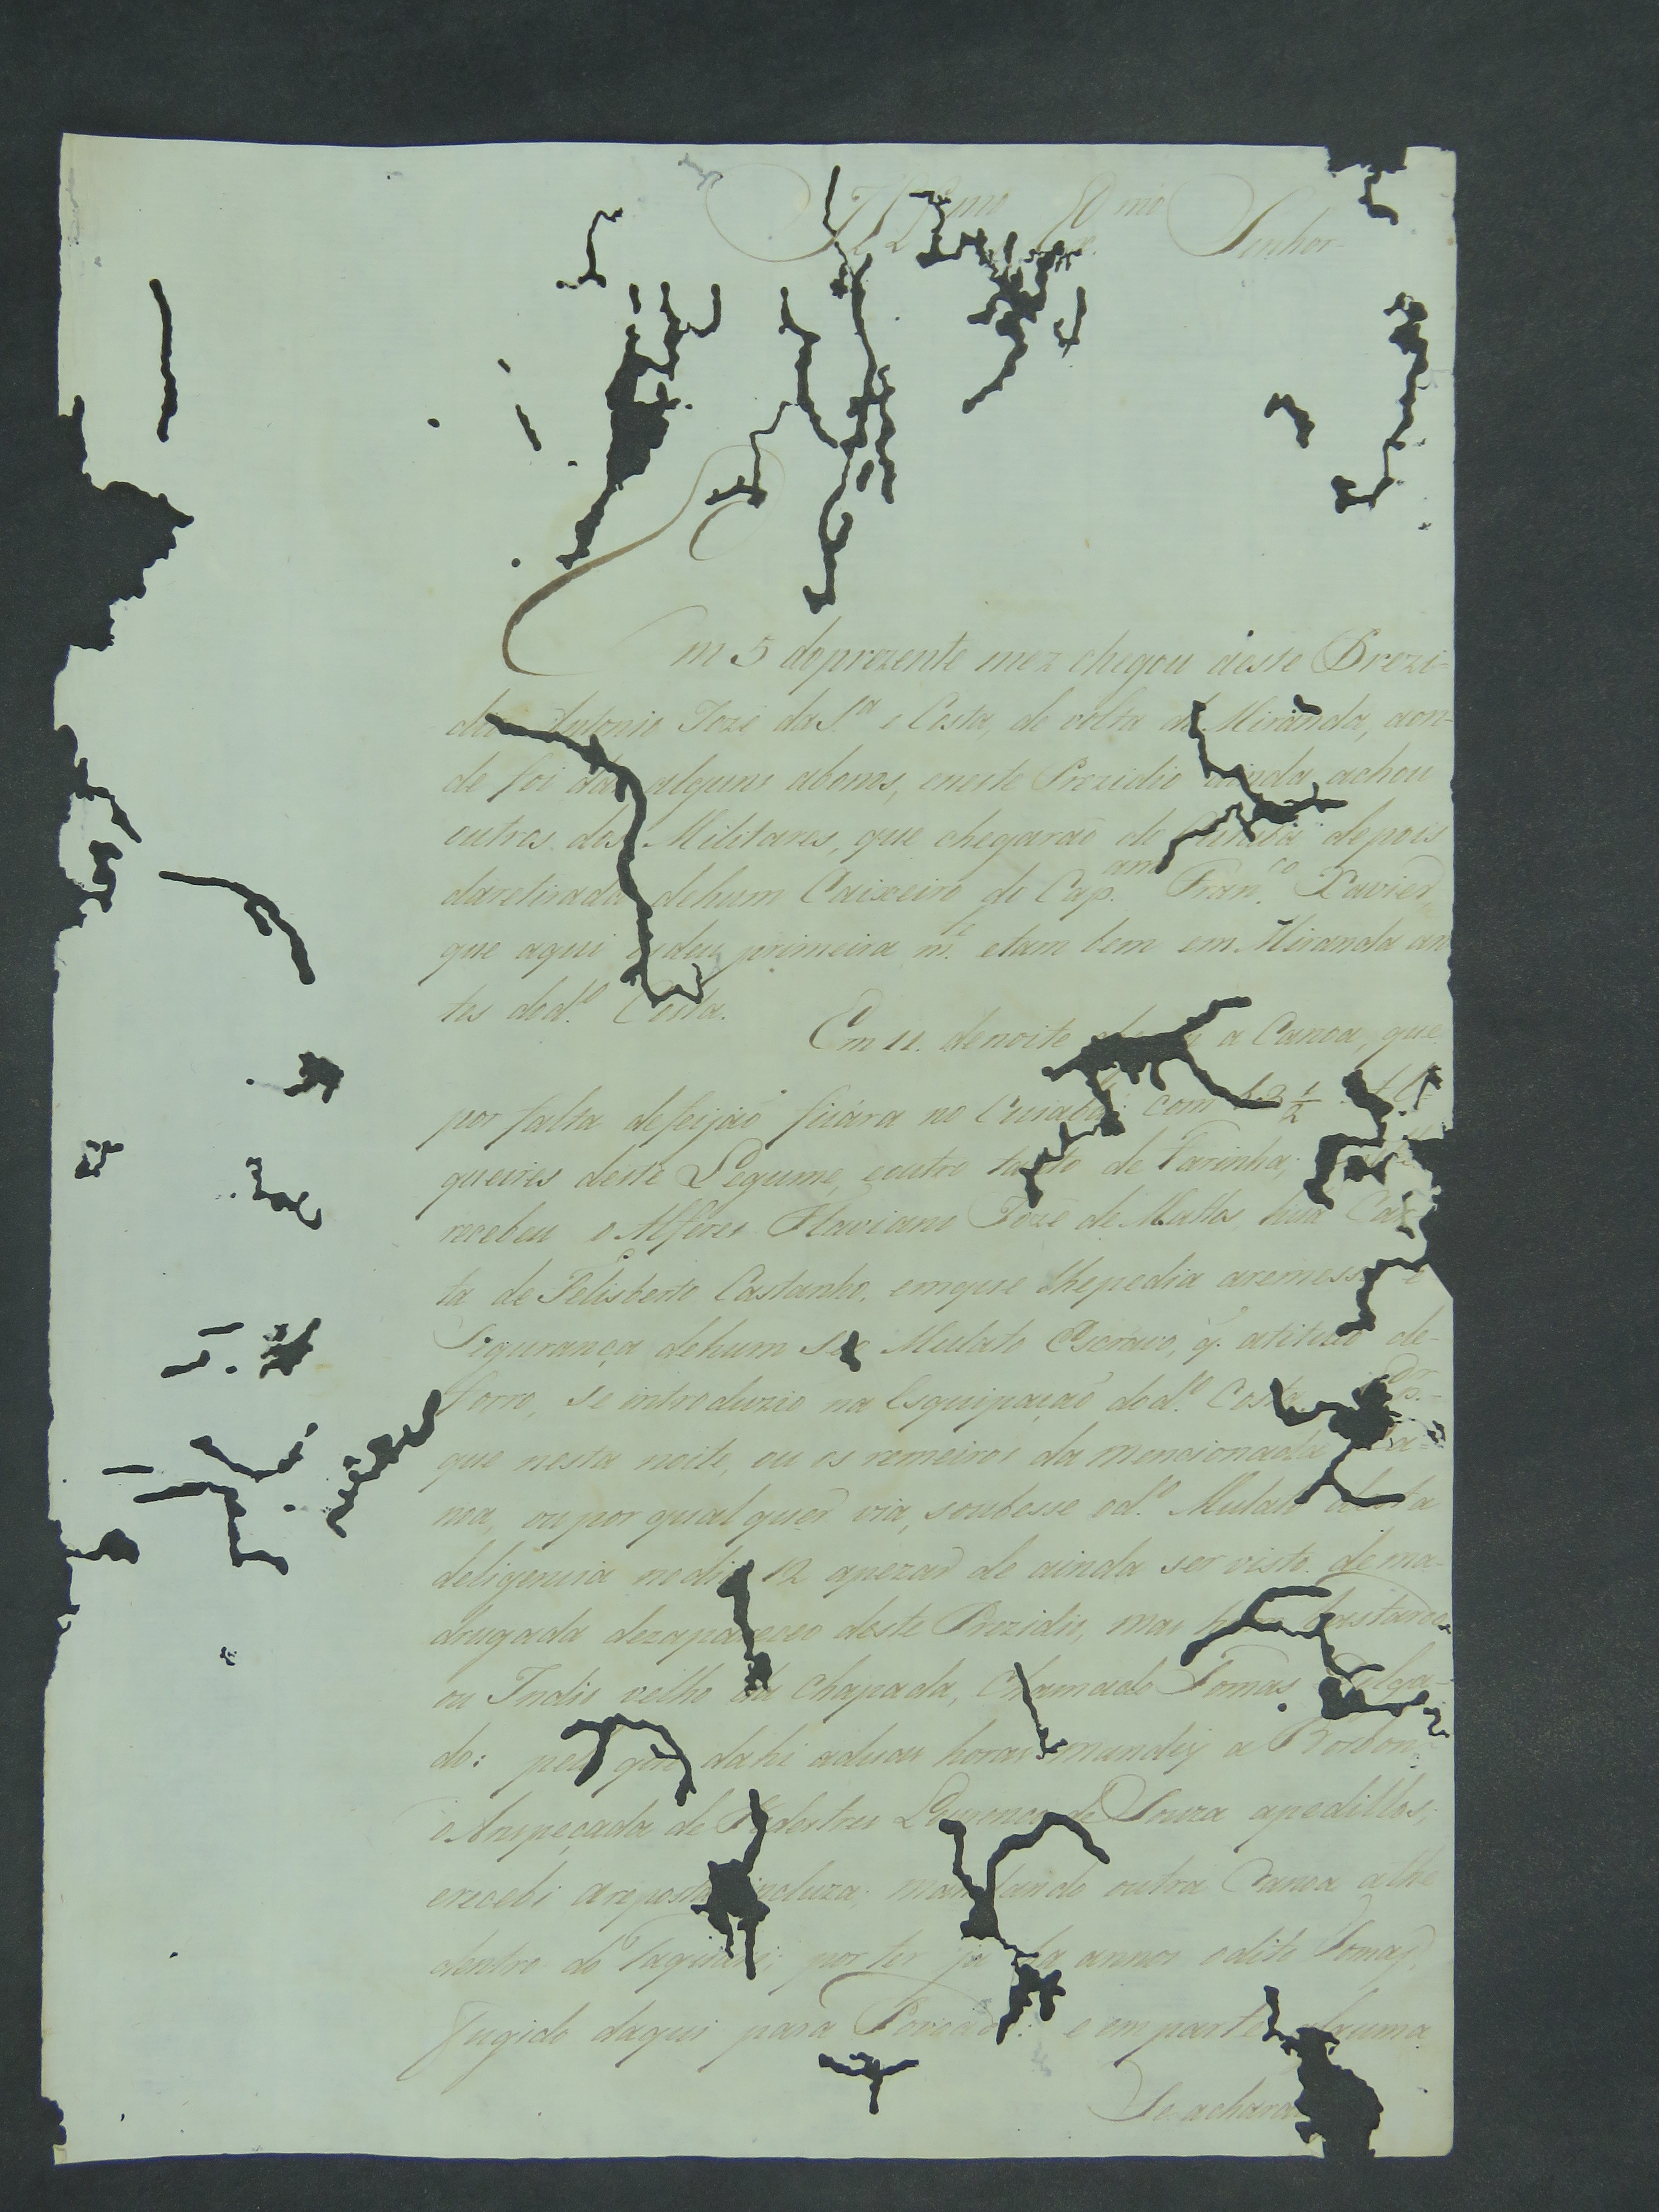 Ill.mo Ex.mo Senhor
Em 5 do prezente mez chegou a este Prezi-
dio Antonio Jozé da S.a e Costa, de volta de Miranda, aon-
de foi dar alguns abonos, e neste Prezidio ainda achou
outros dos Militares, que chegarão do Cuiabá depois
da retirada de hum Caixeiro do Cap.am Fran.co Xavier,
que aqui os deu primeira m.e e tam bem em Miranda an
tes do d.o Costa.
Em 11. de noite a Canoa, que
por falta de feijão ficára no Cuiabá: com 1/2
queires deste Legume, e outro tanto de Farinha;
recebeu o Alferes Flaviano Jozé de Mattos, hua Car-
ta de Felisberto Castanho, em que lhe pedia a remessa e
Segurança de hum seo Mulato Escravo, q. a titulo de
forro, se introduzio na Esquipação do d.o Costa
que nesta noite, ou os remeiros da mencionada Ca-
noa, ou por qual quer via, soubesse o d.o Mulato desta
deligencia no dia 12 apezar de ainda ser visto de ma-
drugada dezapareceo deste Prezidio, mas hum bastardo
ou Indio velho da Chapada, Chamado Tomas Salga-
do: pelo que dahi a duas horas mandey a Borbon
o Anspeçada de Pedestres Lourenço de Souza a pedillos;
e recebi a reposta incluza; mandando outra Canoa athe
dentro do Taquari; por ter ja ha annos o dito Tomas,
fugido daqui para e em parte alguma
Se achara